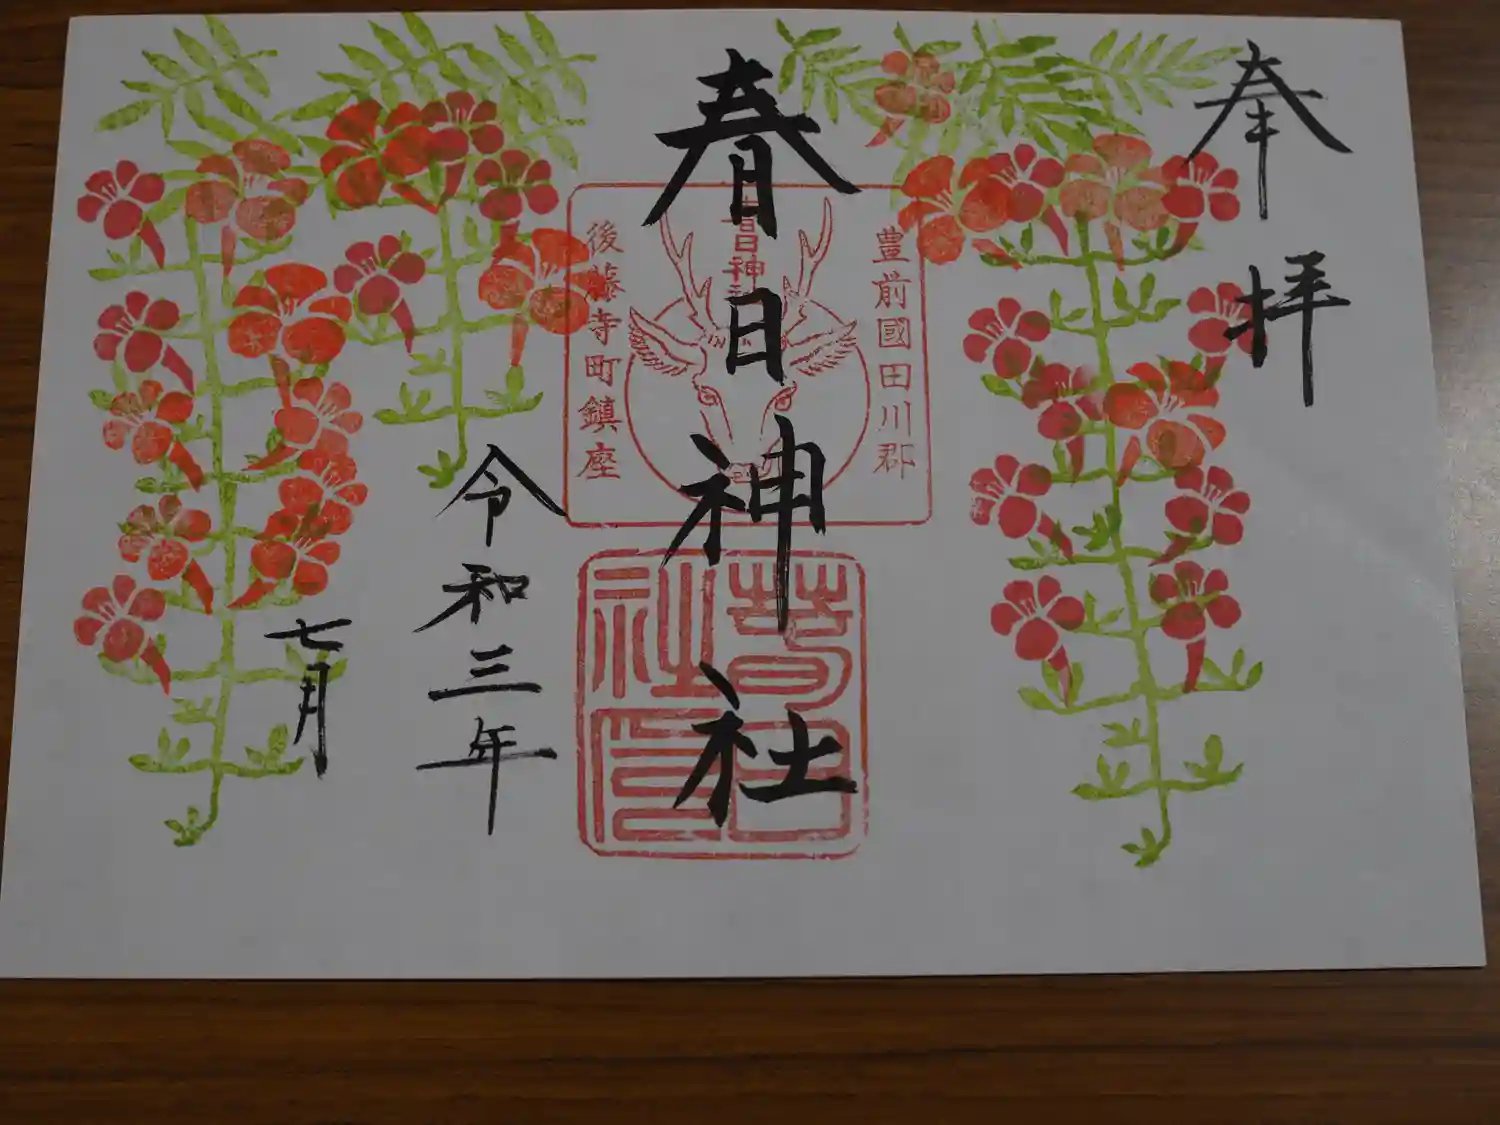 奉拝
豊前國田川郡
春日神社
春日神社
後藤寺町鎮座
令和三年
七月